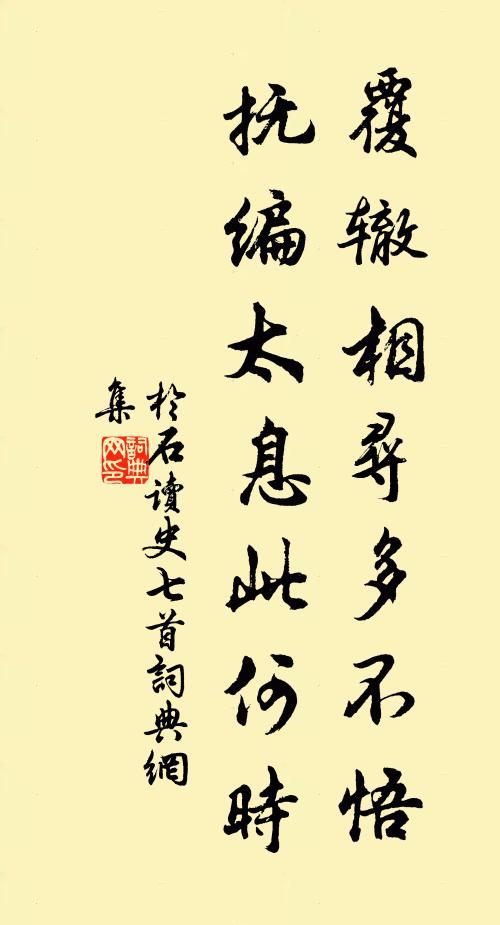 覆辙相尋多不悟
抚编太息此何時
於石讀史七首詞典網
集
詞典网印